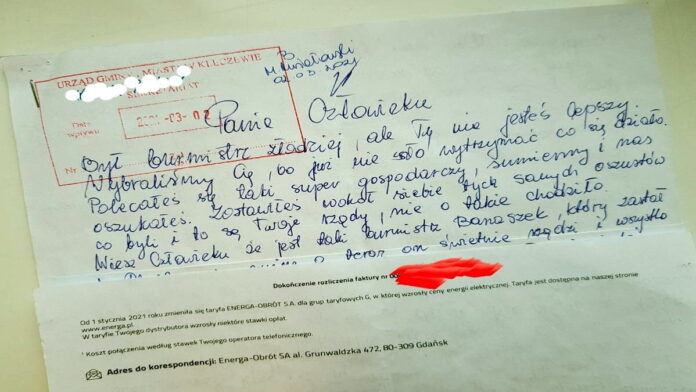 URZĄD GMINY MIASTA W KLECZEWIE
SEKRETARIAT
Data
wpływu
2021-03-02
Nr
P.
02 03 2021
Panie Człowieku
Był burmistrz złodziej, ale Ty nie jesteś lepszy.
Wybraliśmy Cię, bo już nie szło wytrzymać co się działo.
Polecałeś się taki super gospodarczy, sumienny i nas
oszukałeś. Zostawiłeś wokół siebie tych samych oszustów
co byli i to są Twoje rządy, nie o takie chodziło.
Wiesz Człowieku że jest taki burmistrz Banaszek, który zastał
a teraz on świetnie rządzi i wszystko
Dokończenie rozliczenia faktury nr 00
Od 1 stycznia 2021 roku zmieniła się taryfa ENERGA-OBRÓT S.A. dla grup taryfowych G, w której wzrosły ceny energii elektrycznej. Taryfa jest dostępna na naszej stronie
www.energa.pl.
W taryfie Twojego dystrybutora wzrosły niektóre stawki opłat.
¹ Koszt połączenia według stawek Twojego operatora telefonicznego.
Adres do korespondencji: Energa-Obrót SA al. Grunwaldzka 472, 80-309 Gdańsk